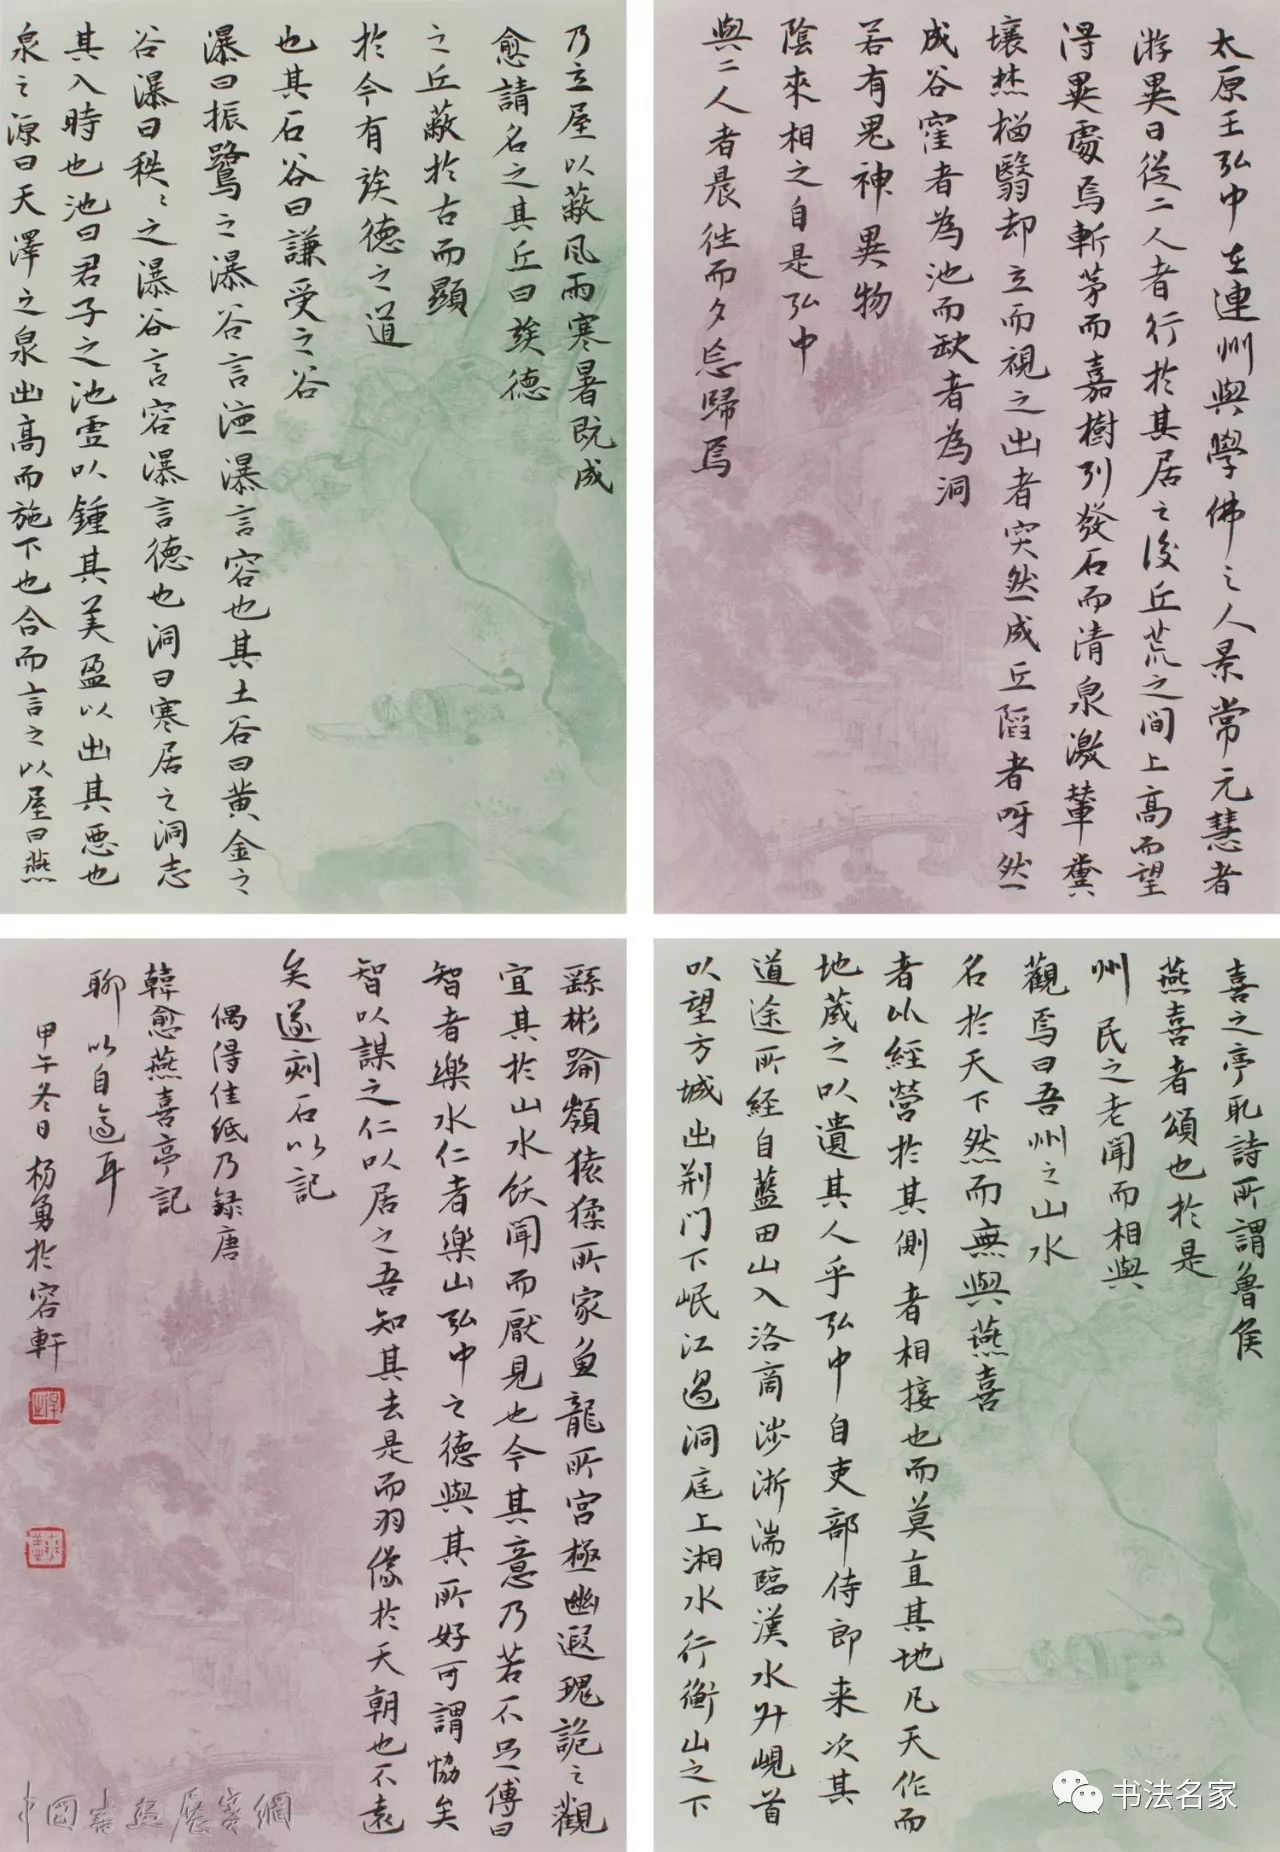 太原王弘中在連州與學佛之人景常元慧者
游異日從二人者行於其居之後丘荒之間上高而望
得異處焉斬茅而嘉樹列發石而清泉激輦糞
壤燃椔翳却立而視之出者突然成丘陷者呀然
成谷窪者為池而缺者為洞
若有鬼神異物
陰來相之自是弘中
與二人者晨往而夕忘歸焉
乃立屋以蔽風雨寒暑既成
愈請名之其丘曰竢德
之丘蔽於古而顯
於今有竢德之道
也其石谷曰謙受之谷
瀑曰振鷺之瀑谷言德瀑言容也其土谷曰黃金之
谷瀑曰秩秩之瀑谷言容瀑言德也洞曰寒居之洞志
其入時也池曰君子之池虛以鍾其美盈以出其惡也
泉之源曰天澤之泉出高而施下也合而言之以屋曰燕
喜之亭取詩所謂魯侯
燕喜者頌也於是
州民之老聞而相與
觀焉曰吾州之山水
名於天下然而無與燕喜
者以經營於其側者相接也而莫直其地凡天作而
地藏之以遺其人乎弘中自吏部侍郎来次其
道途所經自藍田山入洛商涉淅湍臨漢水升峴首
以望方城出荆门下岷江過洞庭上湘水行衡山之下
繇彬踰嶺猿猱所家魚龍所宫極幽遐瑰詭之觀
宜其於山水飫聞而厭見也今其意乃若不足傳曰
智者樂水仁者樂山弘中之德與其所好可謂協矣
智以謀之仁以居之吾知其去是而羽儀於天朝也不遠
矣遂刻石以記
偶得佳紙乃録唐
韓愈燕喜亭記
聊以自適耳
甲午冬日杨勇於容軒
中國書法展賽網
书法名家